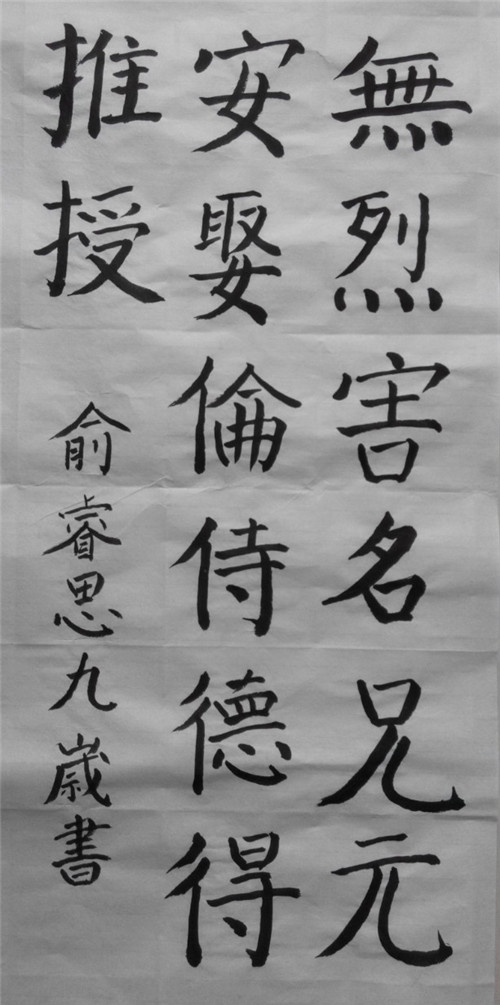 無烈害名兄元
安娶倫侍德得
推授
俞睿思九歲書